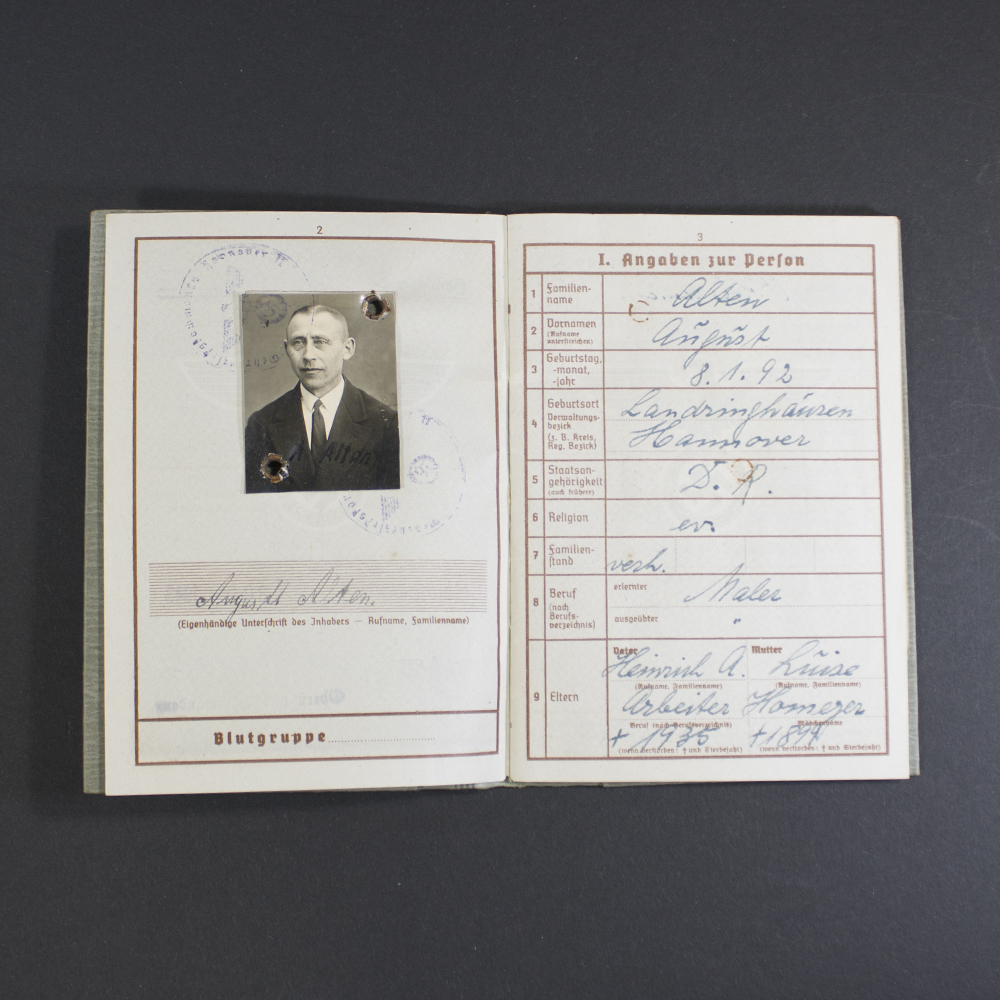 2
August Alten.
(Eigenhändige Unterschrift des Inhabers — Rufname, Familienname)
Blutgruppe
3
I. Angaben zur Person
1 Familien-
name
Alten
2 Vornamen
(Rufname
unterstreichen)
August
3 Geburtstag,
-monat,
-jahr
8.1.92
4 Geburtsort
Verwaltungs-
bezirk
(z. B. Kreis,
Reg. Bezirk)
Landringhausen
Hannover
5 Staatsan-
gehörigkeit
(auch frühere)
D. R.
6 Religion
ev.
7 Familien-
stand
verh.
8 Beruf
(nach
Berufs-
verzeichnis)
erlernter Maler
ausgeübter "
9 Eltern
Vater Mutter
Heinrich A. Luise
(Rufname, Familienname) (Rufname, Familienname)
Arbeiter Homeyer
Beruf (nach Berufsverzeichnis) Mädchenname
† 1935 †
(wenn verstorben: † und Sterbejahr) (wenn verstorben: † und Sterbejahr)